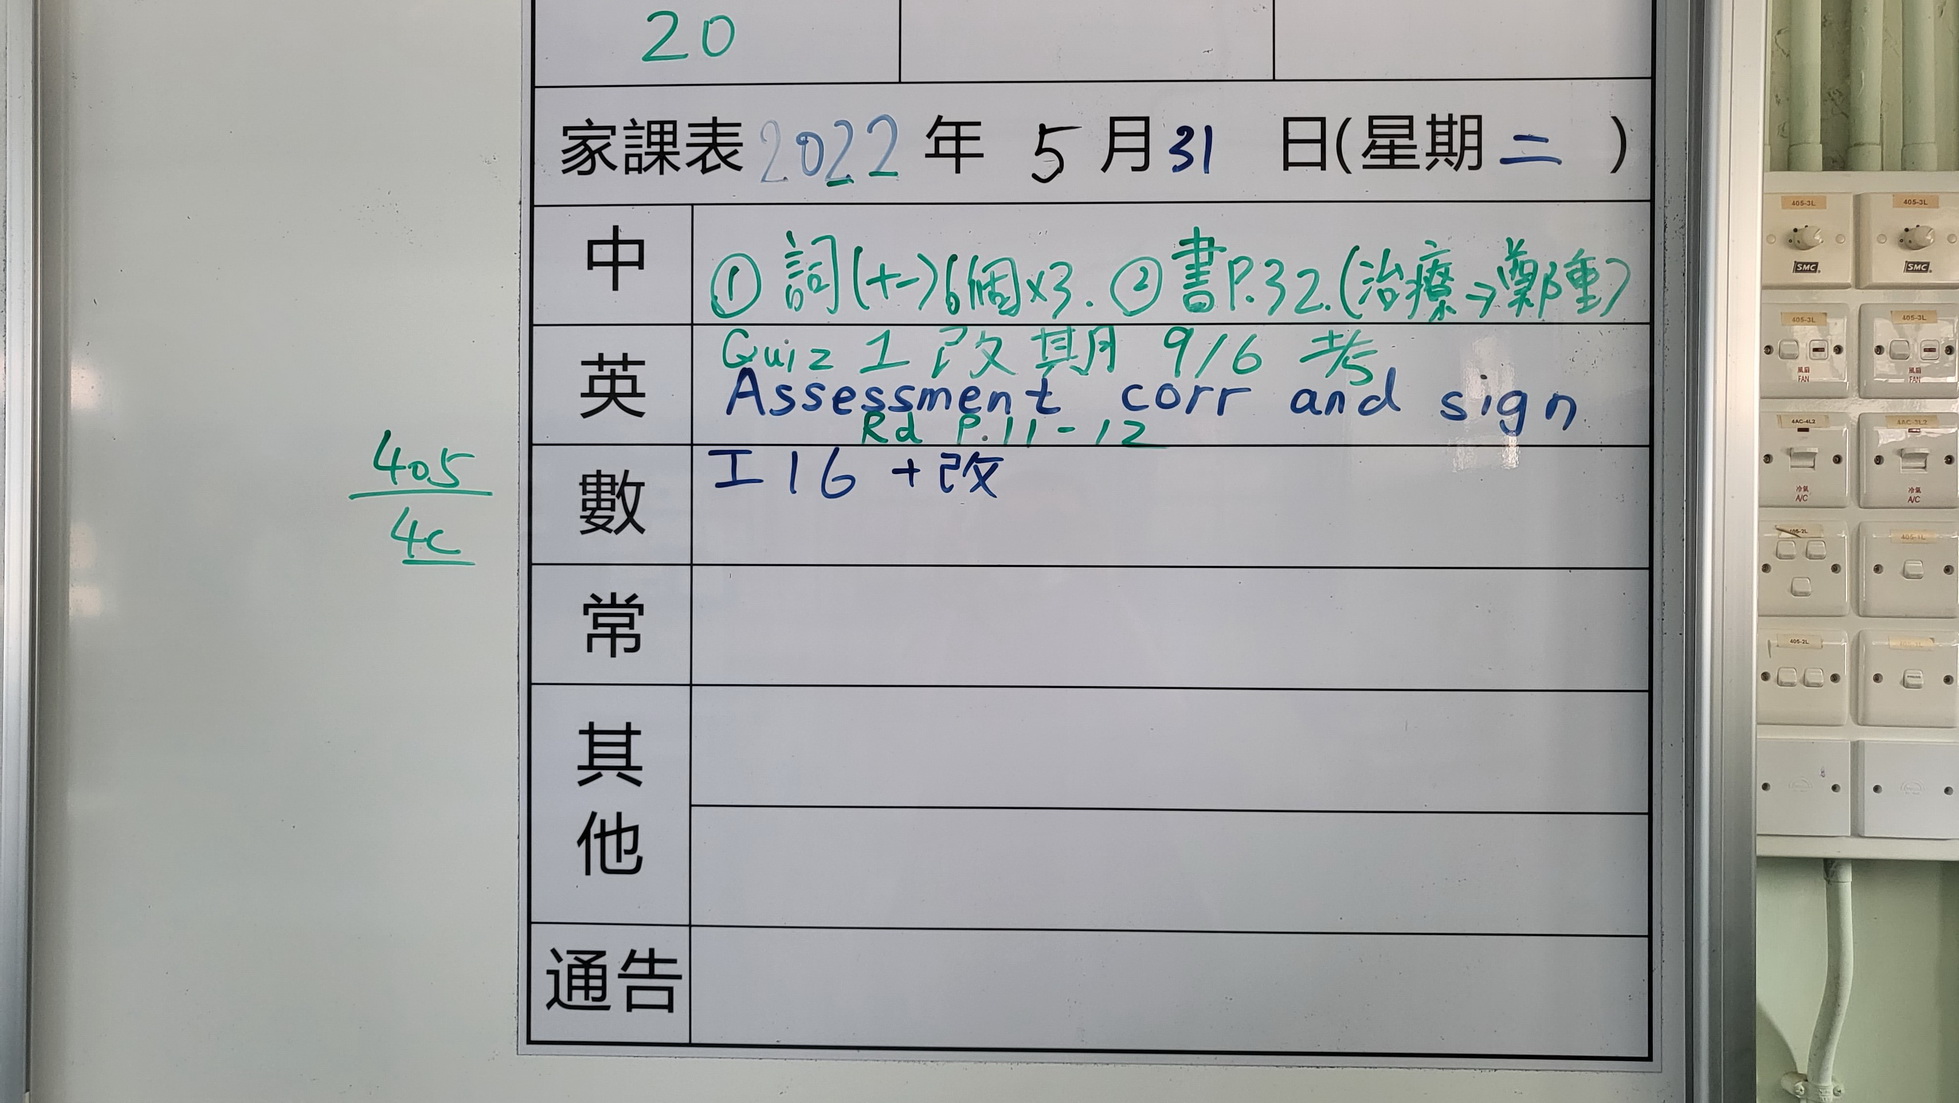 20
家課表 2022 年 5 月 31 日(星期 二 )
中 ① 詞(十一)6個×3. ② 書P.32.(治療→鄭重)
英 Quiz 1 改期 9/6 考
Assessment corr and sign
Rd P.11-12
數 工16 +改
常
其他
通告
405
4C
405-3L 405-3L
SMC SMC
405-3L 405-3L
風扇 FAN 風扇 FAN
6AC-4L2
冷氣 A/C 冷氣 A/C
405-2L